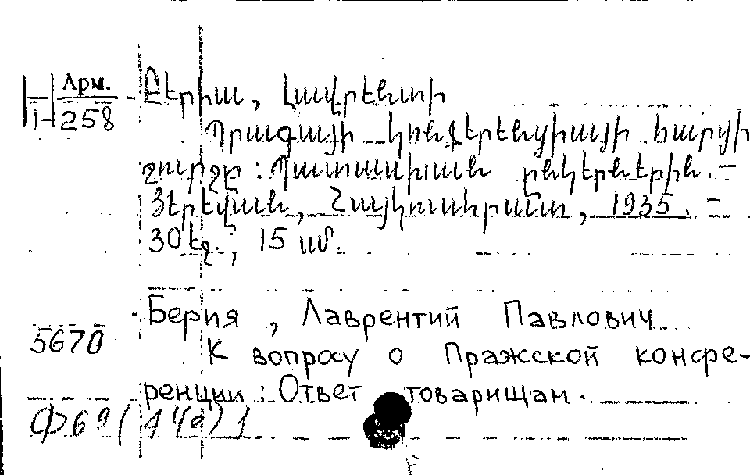 Арм.
1-258
Բերիա, Լավրենտի
Պրագայի կոնֆերենցիայի հարցի
շուրջը: Պատասխան ընկերներին. –
Յերեվան, Հայկուսհրատ, 1935. –
30 էջ.; 15 սմ.
Берия, Лаврентий Павлович
5670
К вопросу о Пражской конфе-
ренции: Ответ товарищам.